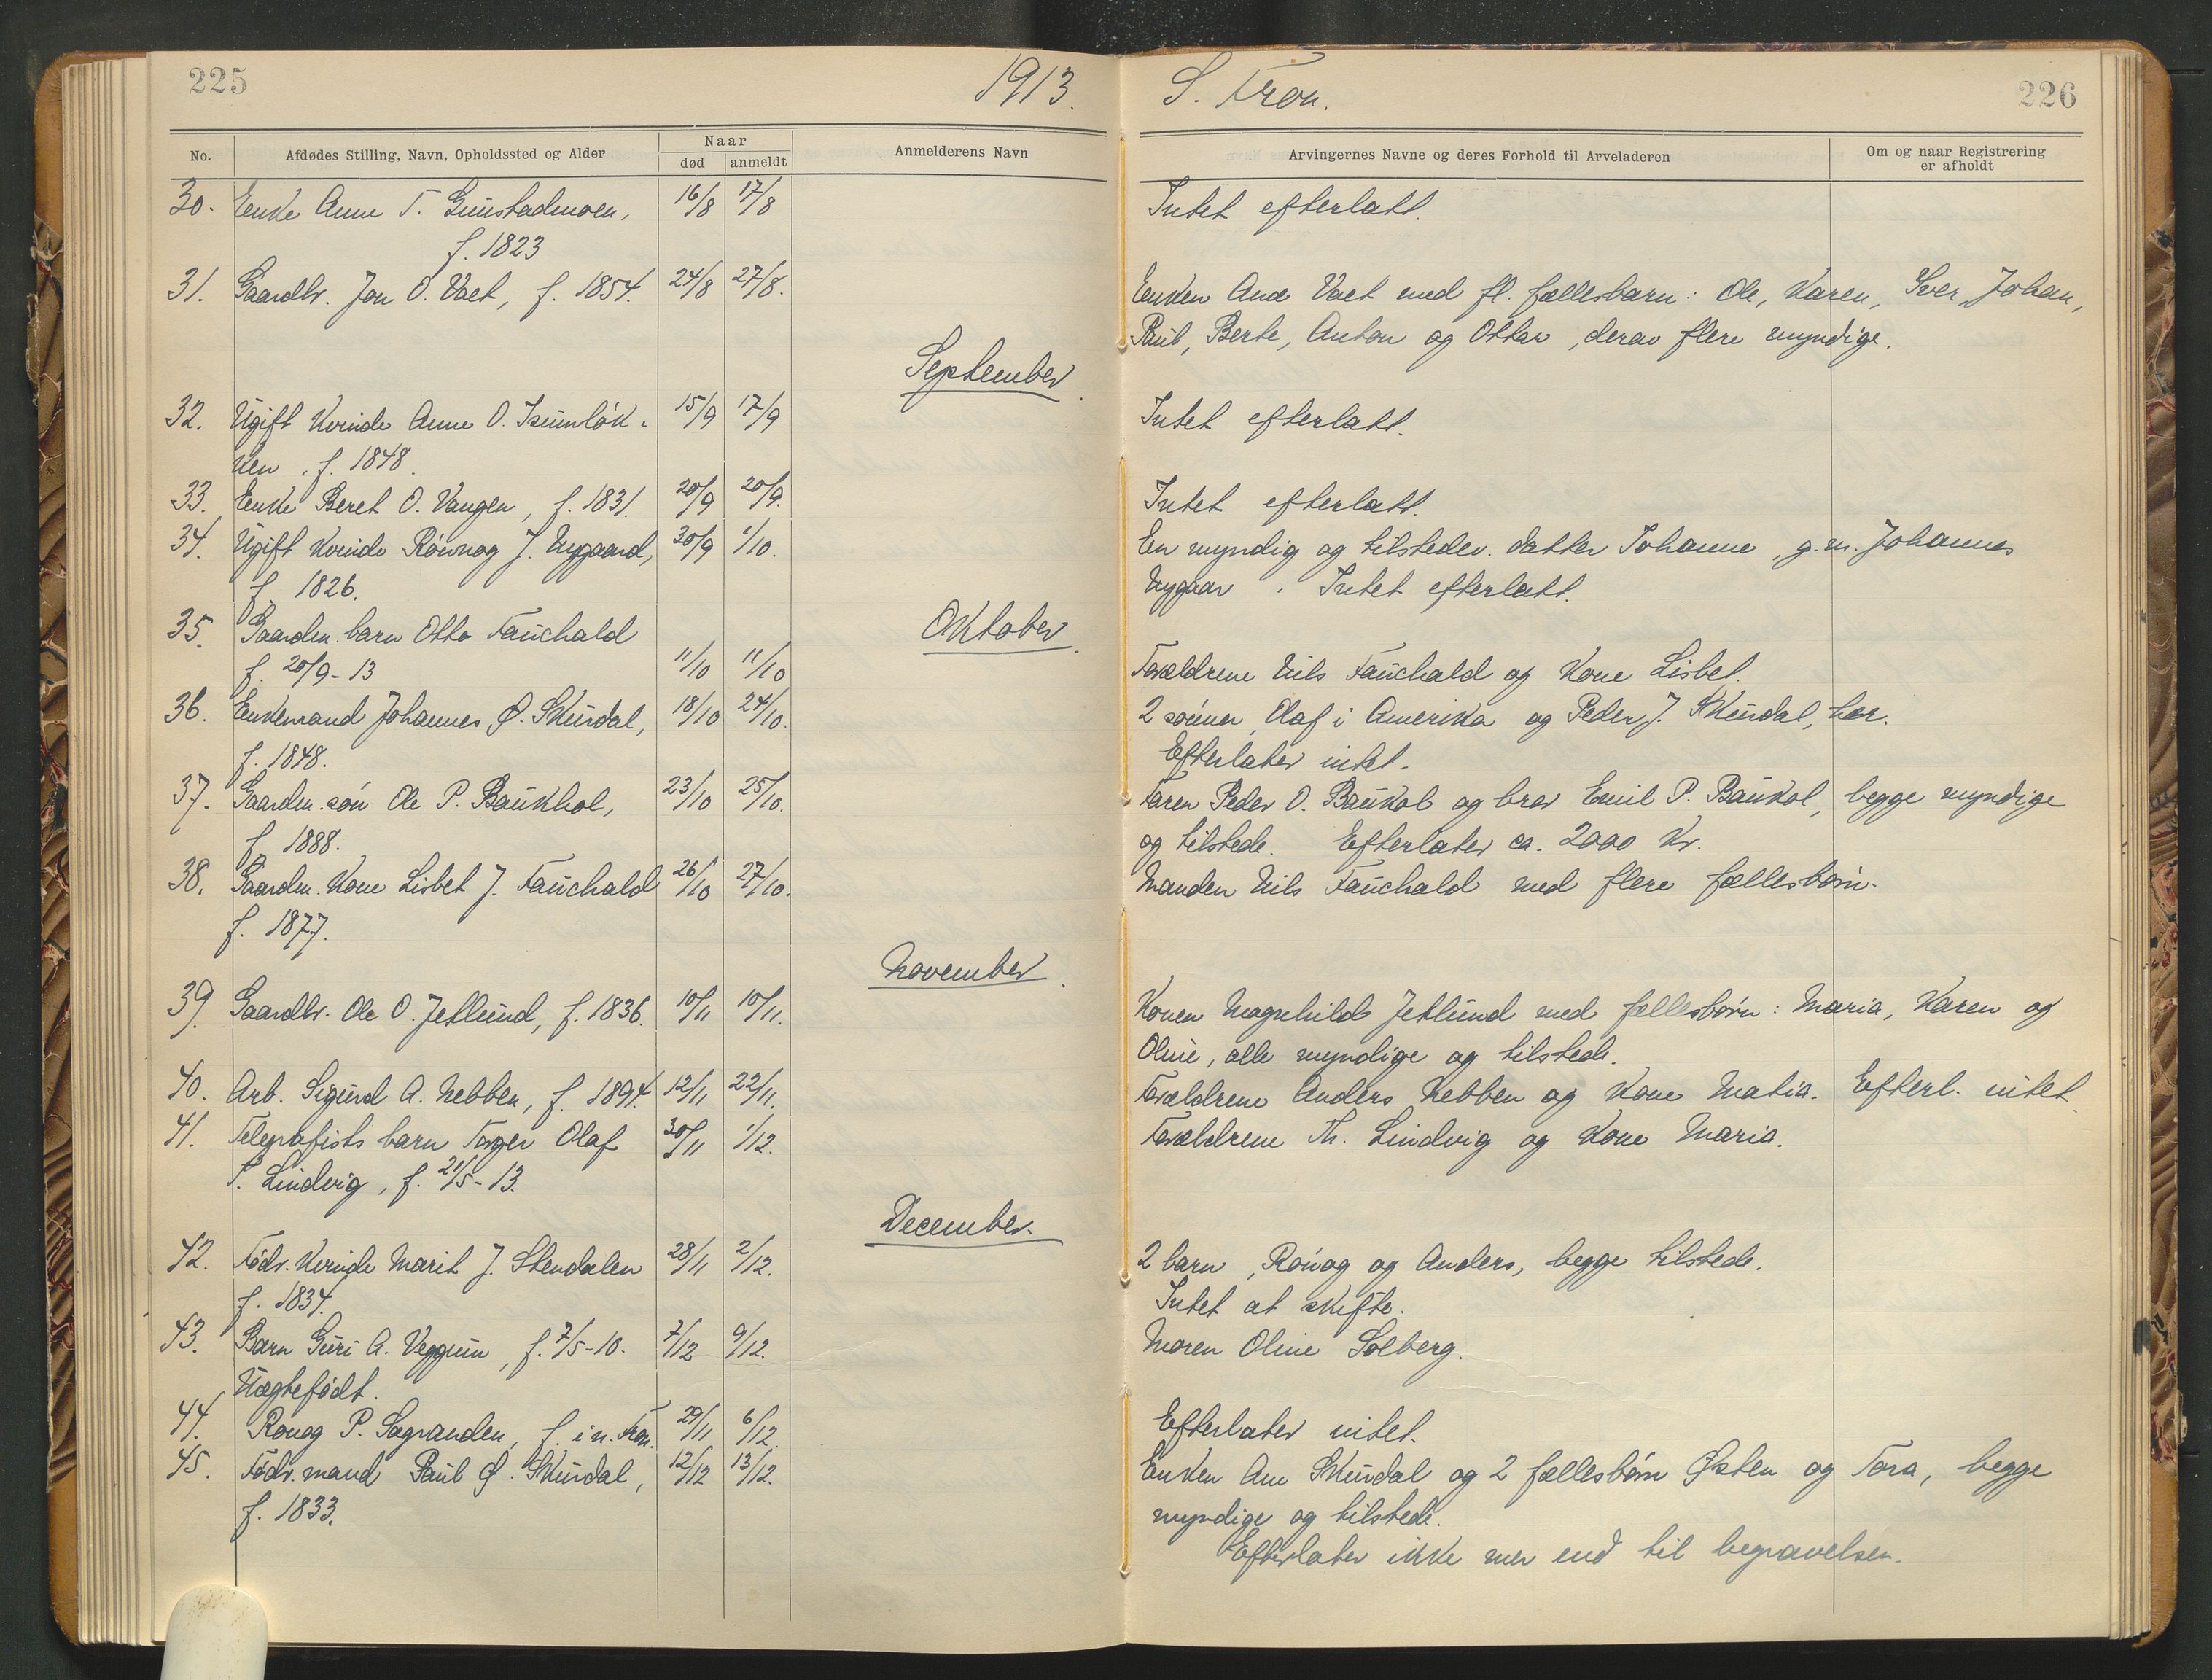 225
1913.
No.
Afdødes Stilling, Navn, Opholdssted og Alder
Naar
død
anmeldt
Anmelderens Navn
30. Enke Anne T. Gunstadmoen, 16/8 17/8
f. 1823
31. Gaardbr. Jon O. Vaet, f. 1854. 24/8 27/8.
September.
32. Ugift Kvinde Anne O. Isumløk- 15/9 17/9
ken, f. 1848.
33. Enke Beret O. Vangen, f. 1831. 20/9 20/9.
34. Ugift Kvinde Rønnog J. Nygaard, 30/9 1/10.
f. 1826.
Oktober.
35. Gaardm. barn Otto Fauchald
f. 20/9-13 11/10 11/10
36. Enkemand Johannes Ø. Skurdal, 18/10 24/10.
f. 1848.
37. Gaardm. søn Ole P. Baukhol, 23/10 25/10.
f. 1888.
38. Gaardm. Kone Lisbet J. Fauchald 26/10 27/10.
f. 1877.
November.
39. Gaardbr. Ole O. Jetlund, f. 1836. 10/11 10/11.
40. Arb. Sigurd A. Nebben, f. 1894. 12/11 22/11.
41. Telegrafists barn Torger Olaf 30/11 1/12.
T. Lindvig, f. 21/5-13.
December.
42. Fødr. Kvinde Marit J. Stendalen 28/11 2/12.
f. 1834.
43. Barn Guri A. Veggum, f. 7/5-10. 7/12 9/12.
Uægtefødt.
44. Ronog P. Sagranden, f. i n. Fron. 29/11 6/12.
45. Fødr. mand Paul Ø. Skurdal, 12/12 13/12.
f. 1833.
S. Fron.
226
Arvingernes Navne og deres Forhold til Arveladeren
Om og naar Registrering
er afholdt
Intet efterlatt.
Enken Ane Vaet med fl. fællesbarn: Ole, Karen, Iver, Johan,
Paul, Berte, Anton og Ottar, derav flere myndige.
Intet efterlatt.
Intet efterlatt.
En myndig og tilstedev. datter Johanne, g.m. Johannes
Nygaar. Intet efterlatt.
Forældrene Nils Fauchald og Kone Lisbet.
2 sønner, Olaf i Amerika og Peder J. Skurdal, her.
Efterlater intet.
Faren Peder O. Baukol og bror Emil P. Baukol, begge myndige
og tilstede. Efterlater ca. 2000 Kr.
Manden Nils Fauchald med flere fællesbørn.
Konen Magnhild Jetlund med fællesbørn: Maria, Karen og
Oline, alle myndige og tilstede.
Forældrene Anders Nebben og Kone Matia. Efterl. intet.
Forældrene Th. Lindvig og Kone Maria.
2 barn, Rønog og Anders, begge tilstede.
Intet at skifte.
Moren Oline Solberg.
Efterlater intet.
Enken Ane Skurdal og 2 fællesbørn Østen og Tora, begge
myndige og tilstede.
Efterlater ikke mer end til begravelsen.